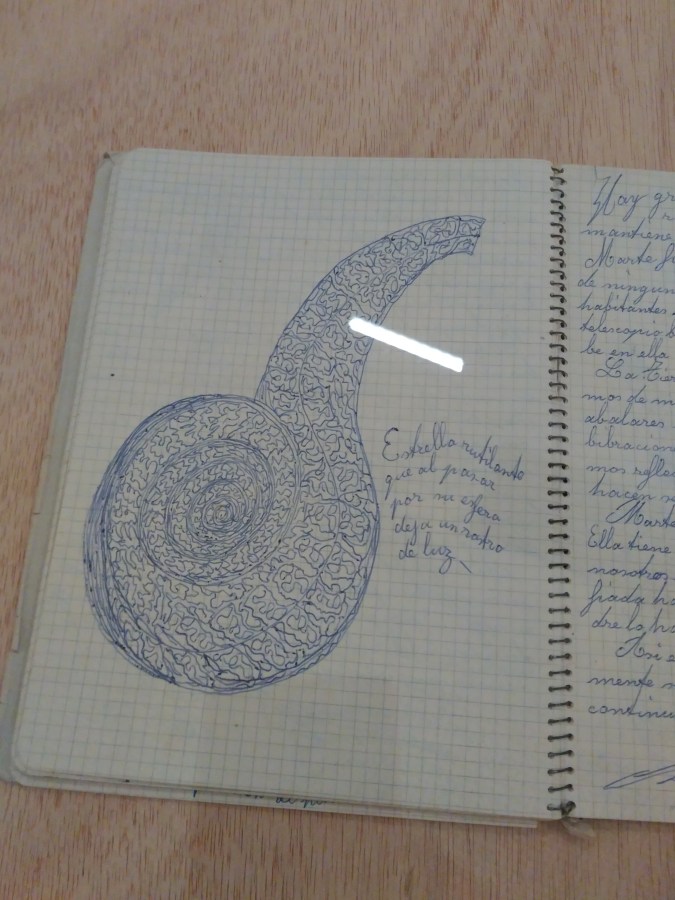 Estrella rutilante
que al pasar
por su esfera
deja un rostro
de luz
Hay gr
mantiene
Marte
de ningun
habitantes
telescopio
be en ella
La tier
mos de m
abalares
bibracion
mos refle
hacen se
Marte
Ella tiene
nosotros
fiada ha
dre lo ha
Asi e
mente n
continu